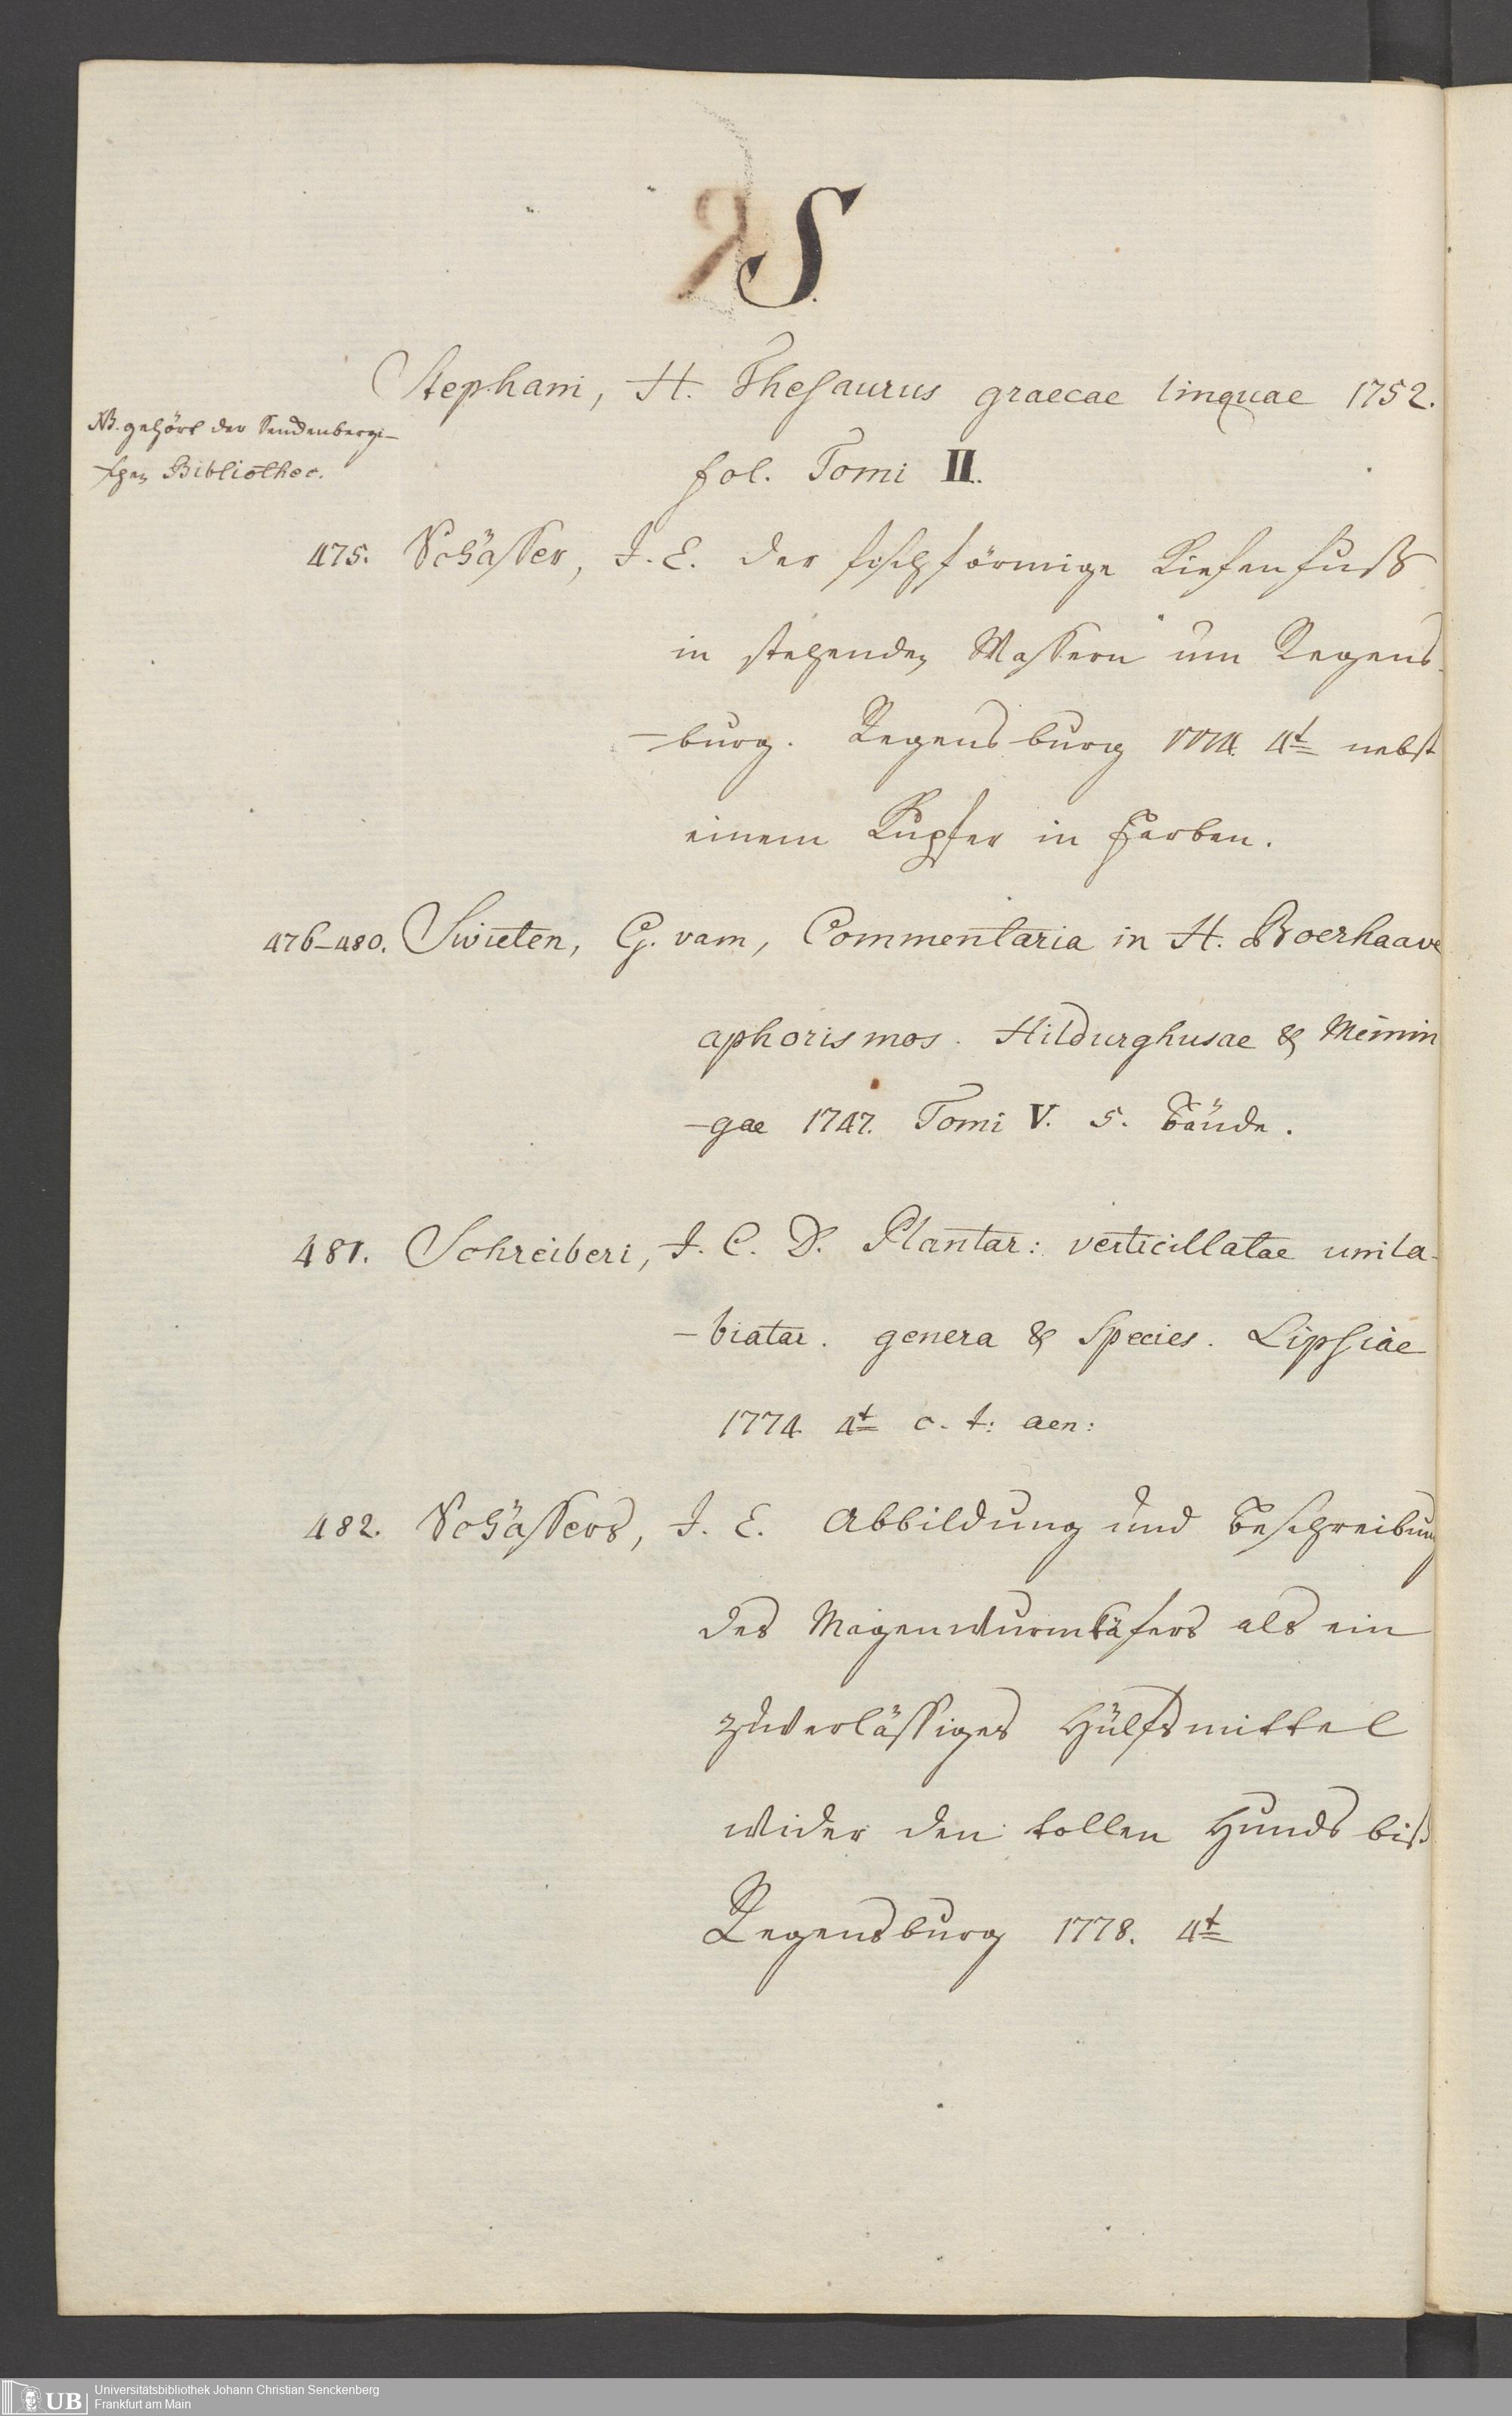 S.
Stephani, H. Thesaurus graecae linquae 1752.
fol. Tomi II.
NB. gehört der Senckenbergi-
schen Bibliothec.
475. Schäffer, J. E. der fischförmige Kiefenfuß
in stehenden Wassern um Regens-
-burg. Regensburg 4t nebst
einem Kupfer in Farben.
476-480. Swieten, G. vam, Commentaria in H. Boerhaave
aphorismos. Hildurghusae & Meinin
-gae 1747. Tomi V. 5. Bände.
481. Schreiberi, J. C. D. Plantar: verticillatae unila-
-biatar. genera & Species. Lipsiae
1774. 4t c. t: aen:
482. Schäffers, J. E. Abbildung und Beschreibung
des Mayenwurmkäfers als ein
zuverlässiges Hülfsmittel
wider den tollen Hunds biß
Regensburg 1778. 4t
UB Universitätsbibliothek Johann Christian Senckenberg
Frankfurt am Main